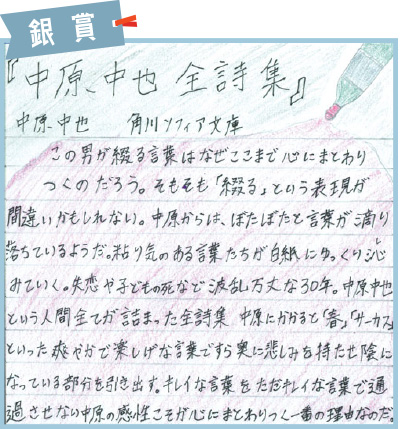 銀賞
『中原中也 全詩集』
中原中也 角川ソフィア文庫
この男が綴る言葉はなぜここまで心にまとわり
つくのだろう。そもそも「綴る」という表現が
間違いかもしれない。中原からは、ぽたぽたと言葉が滴り
落ちているようだ。粘り気のある言葉たちが白紙にゆっくり沁
みていく。失恋や子どもの死など波乱万丈な30年。中原中也
という人間全てが詰まった全詩集 中原にかかると「春」「サーカス」
といった爽やかで楽しげな言葉ですら奥に悲しみを持たせ陰に
なっている部分を引き出す。キレイな言葉をただキレイな言葉で通
過させない中原の感性こそが心にまとわりつく一番の理由なのだ。